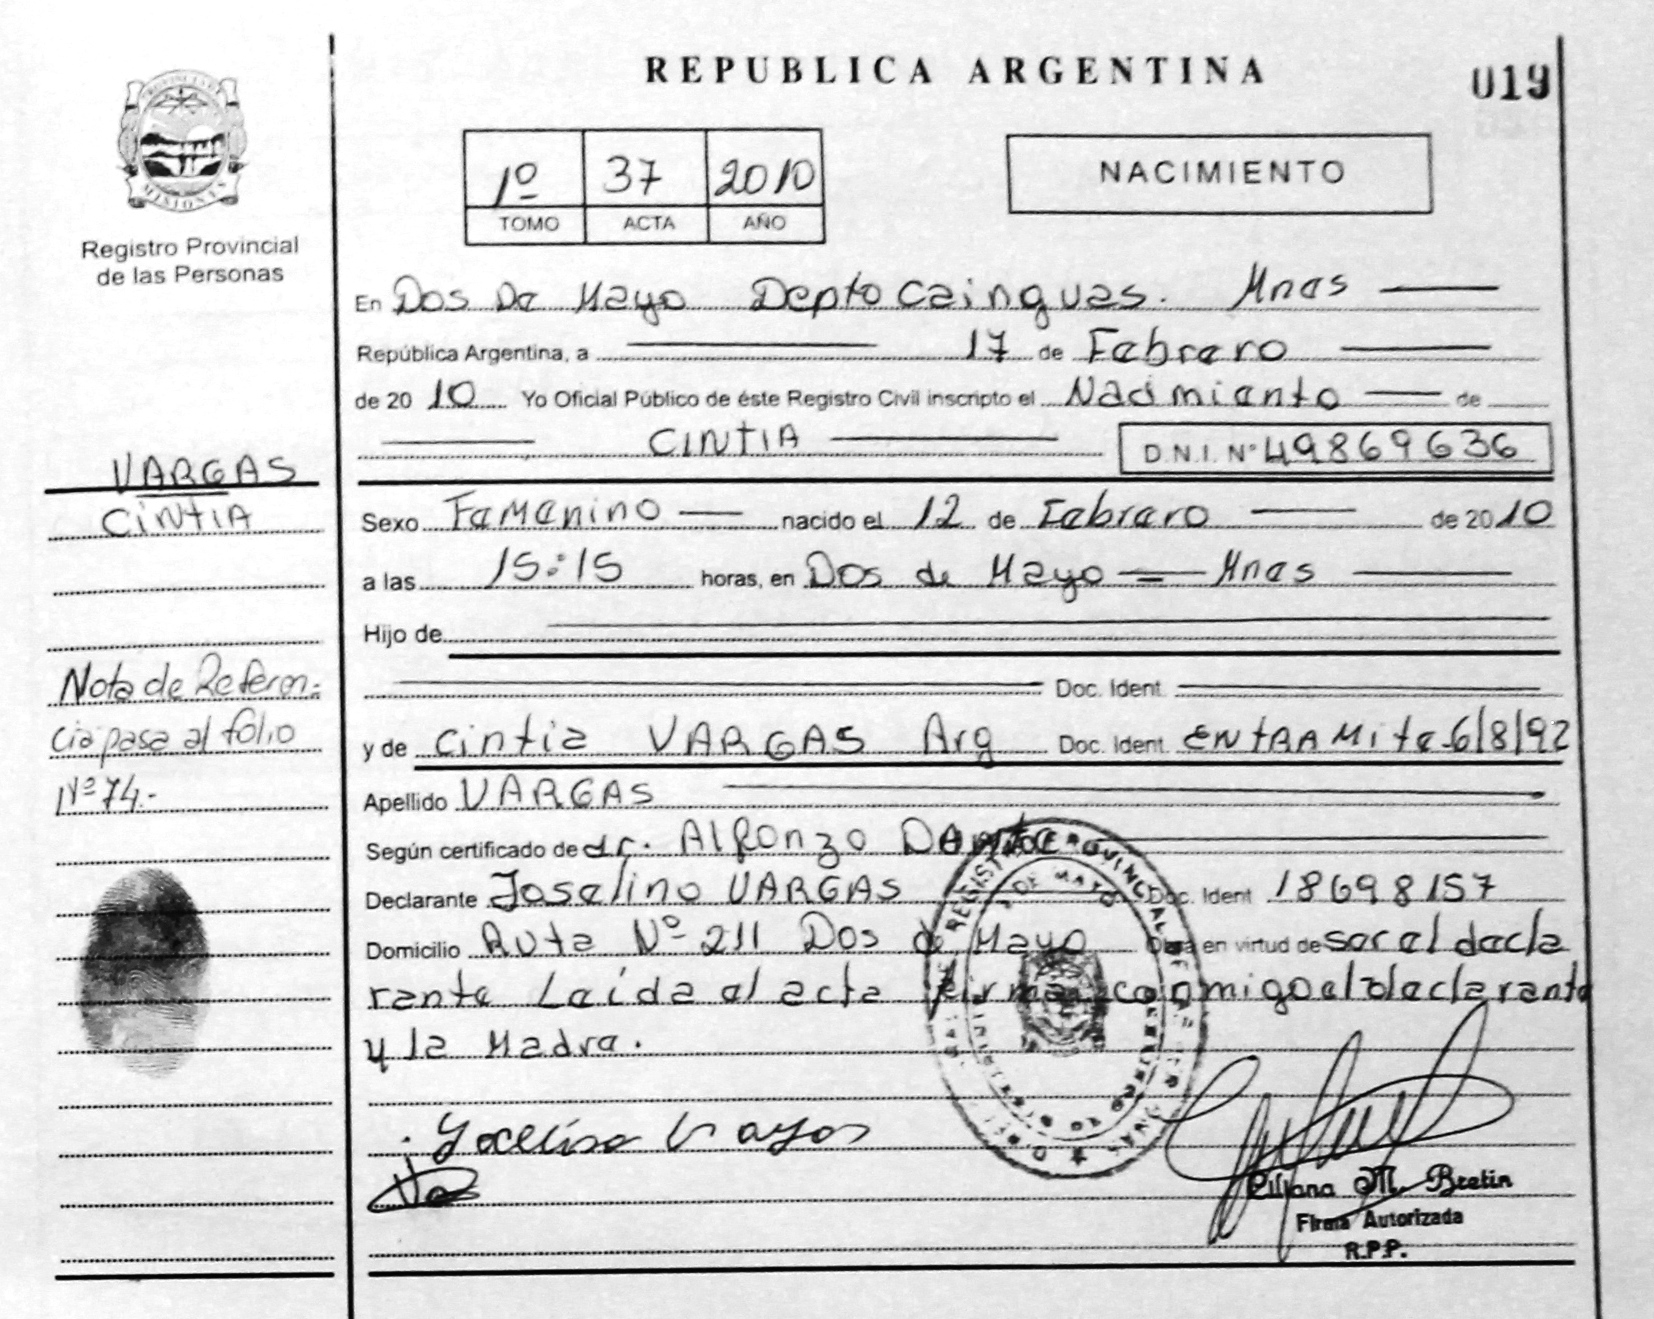 REPUBLICA ARGENTINA
019
PROVINCIA DE MISIONES
Registro Provincial
de las Personas
1º 37 2010
TOMO ACTA AÑO
NACIMIENTO
En Dos De Mayo Depto Cainguas. Mnas
República Argentina, a 17 de Febrero
de 2010 Yo Oficial Público de éste Registro Civil inscripto el Nacimiento de
CINTIA D.N.I. Nº 49869636
VARGAS
CINTIA
Sexo Femenino nacido el 12 de Febrero de 2010
a las 15:15 horas, en Dos de Mayo = Mnas
Hijo de
Doc. Ident.
Nota de Referen-
cia pasa al folio
Nº 74.-
y de Cintia VARGAS Arg Doc. Ident. EN tRAMite 6/8/92
Apellido VARGAS
Según certificado de dr. Alfonzo
Declarante Joselino VARGAS Doc. Ident 18698157
Domicilio Ruta Nº 211 Dos de Mayo Obra en virtud de ser el decla
rante Leída el acta firman conmigo el declarante
y la Madre.
Liliana M. Bretin
Firma Autorizada
R.P.P.